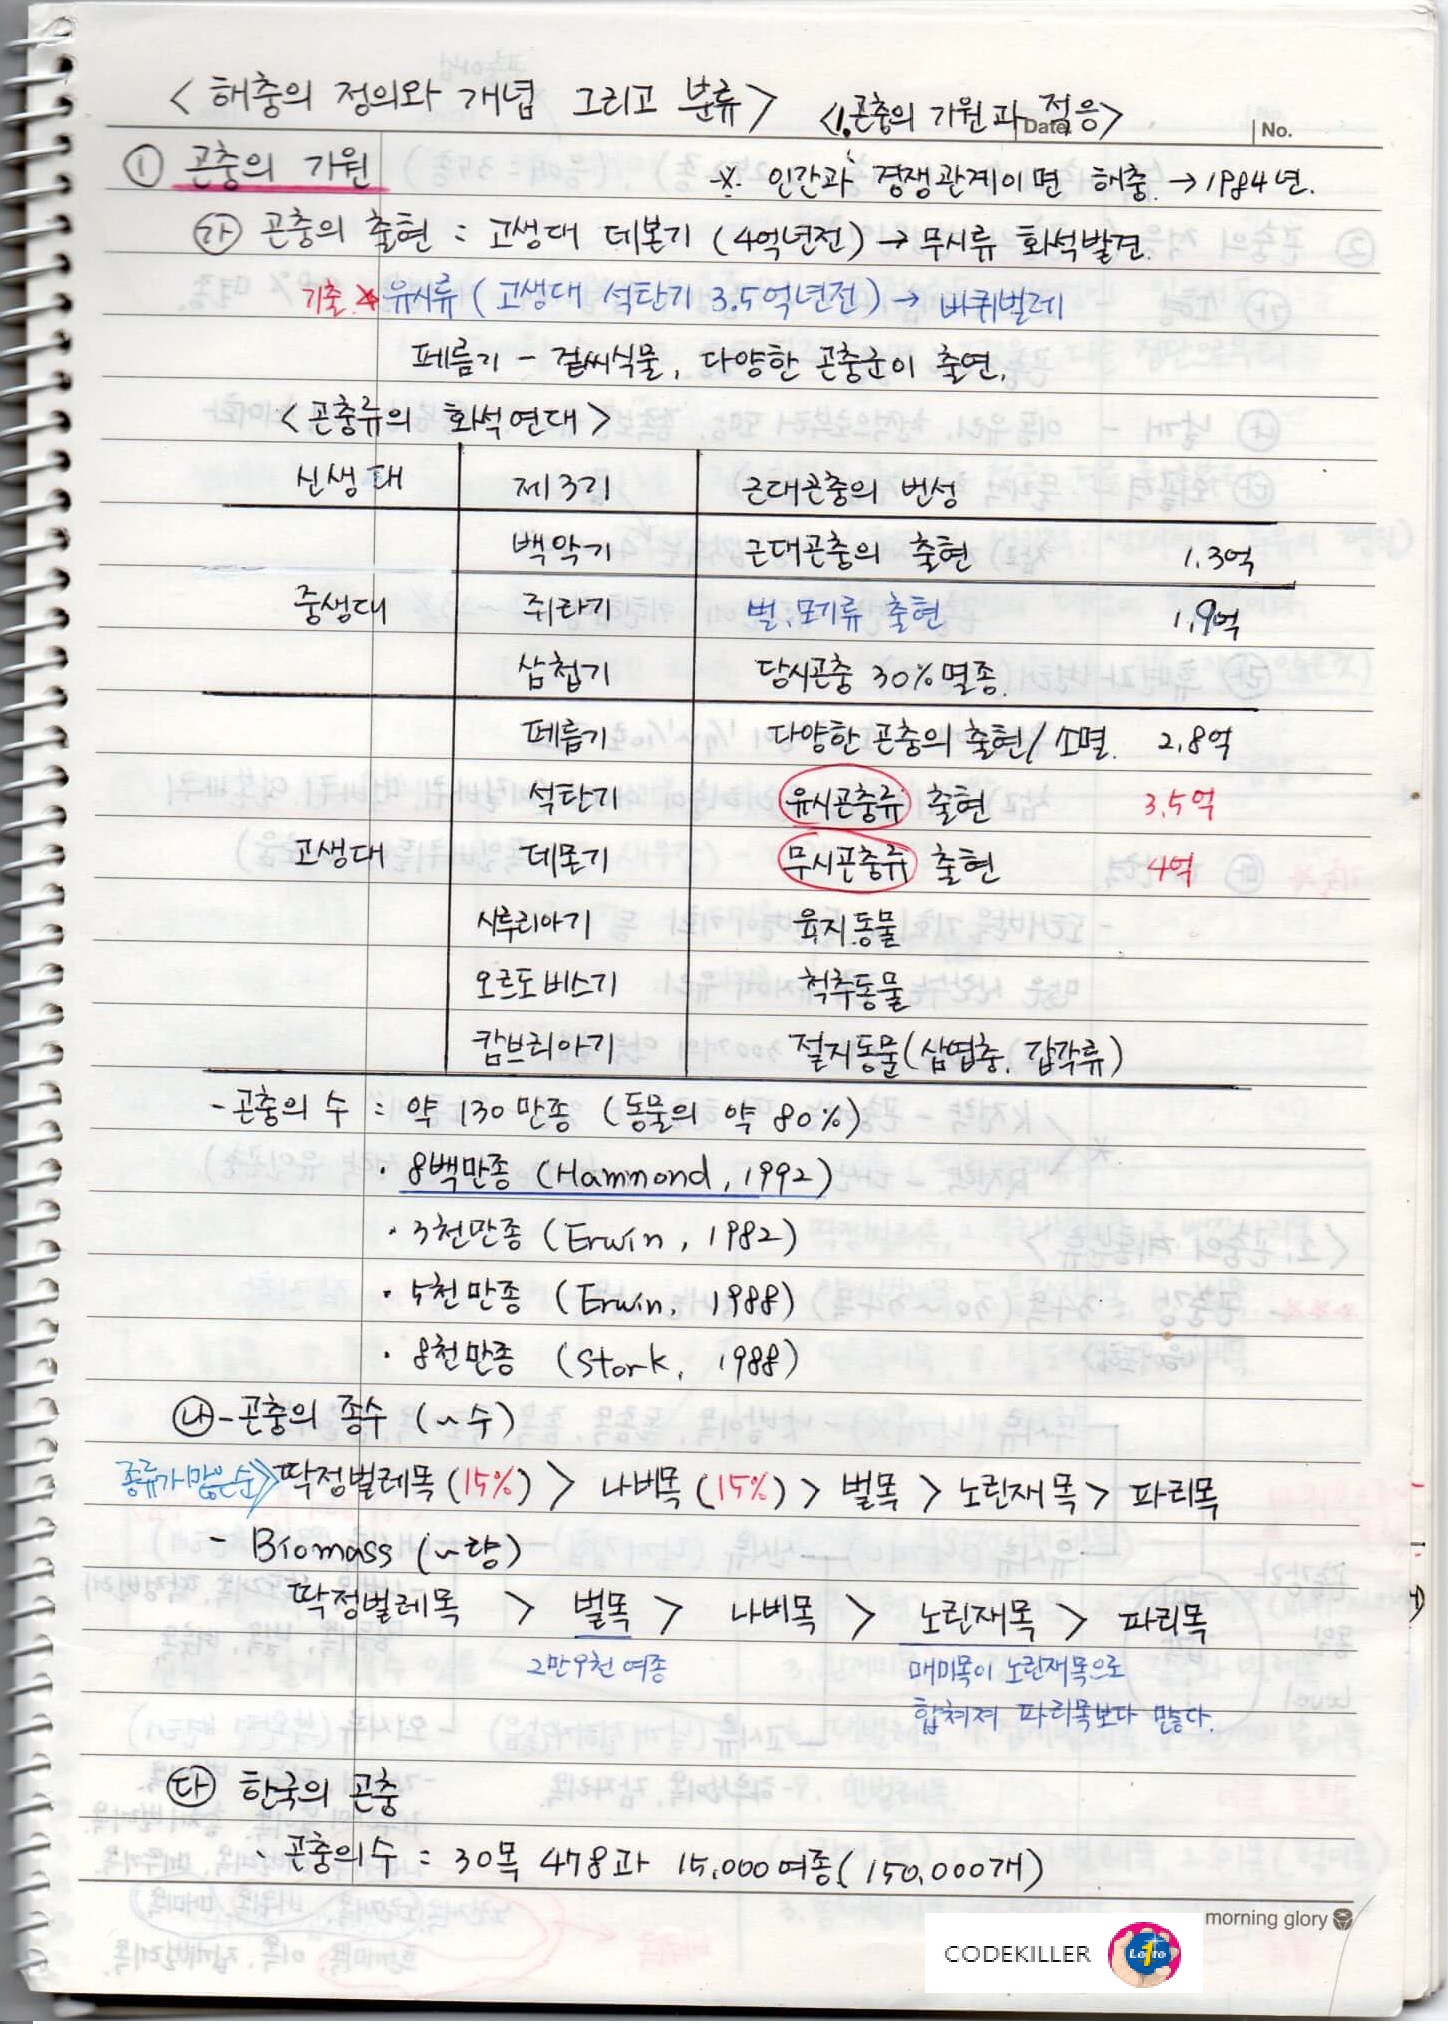 <해충의 정의와 개념 그리고 분류> <1.곤충의 기원과 적응>
Date. No.
① 곤충의 기원 ※ 인간과 경쟁관계이면 해충. → 1984년.
㉮ 곤충의 출현 : 고생대 데본기 (4억년전) → 무시류 화석발견.
기출.★ 유시류 (고생대 석탄기 3.5억년전) → 바퀴벌레
페름기 - 겉씨식물, 다양한 곤충군이 출연.
<곤충류의 화석연대>
신생대 제3기 근대곤충의 번성
백악기 근대곤충의 출현 1.3억
중생대 쥐라기 벌, 모기류 출현 1.9억
삼첩기 당시곤충 30%멸종.
페름기 다양한 곤충의 출현/소멸. 2.8억
석탄기 유시곤충류 출현 3.5억
고생대 데본기 무시곤충류 출현 4억
시루리아기 육지동물
오르도비스기 척추동물
캄브리아기 절지동물(삼엽충, 갑각류)
- 곤충의 수 : 약 130만종 (동물의 약 80%)
· 8백만종 (Hammond, 1992)
· 3천만종 (Erwin, 1982)
· 5천만종 (Erwin, 1988)
· 8천만종 (Stork, 1988)
㉯ - 곤충의 종수 (~수)
종류가 많은순≫ 딱정벌레목 (15%) > 나비목 (15%) > 벌목 > 노린재목 > 파리목
- Biomass (~량)
딱정벌레목 > 벌목 > 나비목 > 노린재목 > 파리목
2만9천여종 매미목이 노린재목으로
합쳐져 파리목보다 많다.
㉰ 한국의 곤충
- 곤충의수 : 30목 478과 15,000여종(150,000개)
morning glory
CODEKILLER Lotto 1